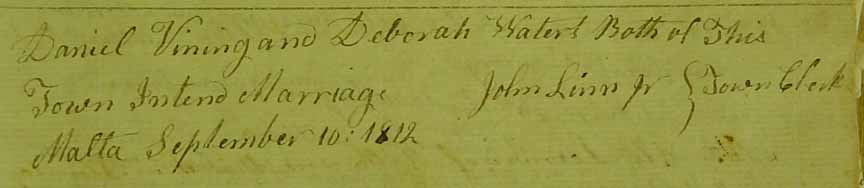 Daniel Vining and Deborah Waters Both of This
Town Intend Marriage John Linn Jr { Town Clerk
Malta September 10: 1812